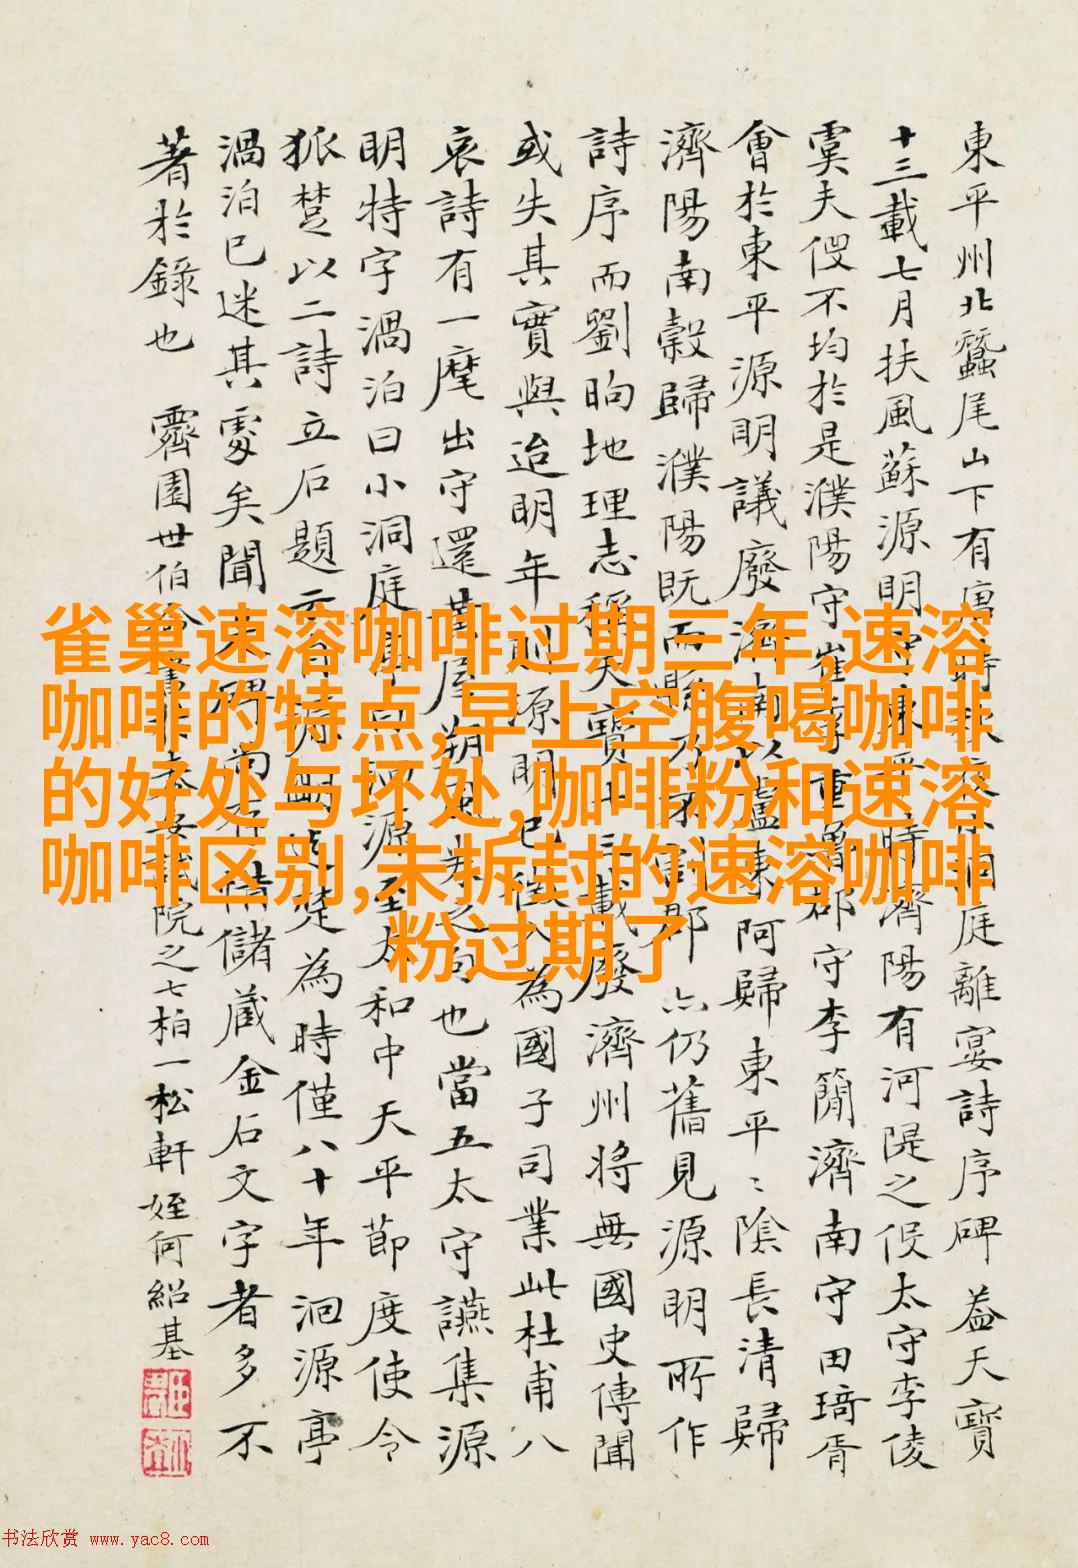 東平州北蠶尾山下有唐時洞庭離宴詩序碑蓋天寶
十三載七月扶風蘇源明時濟陽有河隄之役太守李倰
虞夫役不均於是濮陽守崔季重魯郡守李蕑濟南守田琦胥
會於東平源明議廢濟南以盧東阿歸東平〻陰長清歸
濟陽南穀歸濮陽既而郡亦仍舊見源明所作
詩序而劉昫地理志稱天寶十三載廢濟州將無國史傳聞
或失其實與迨明年則源明已為國子司業此杜甫八
哀詩有一麾出守還黃屋朔之句也當五太守讌集源
明特字渦泊曰小洞庭源至太和中天平節度使令
狐楚以二詩立石題楚為時僅八十年洄源亭
渦泊已迷其處矣聞儲藏金石文字者多不
著於錄也 霽園世伯院之七柏一松軒姪何紹基
雀巢速溶咖啡过期三年,速溶
咖啡的特点,早上空腹喝咖啡
的好处与坏处,咖啡粉和速溶
咖啡区别,未拆封的速溶咖啡
粉过期了
书法欣赏 www.yac8.com